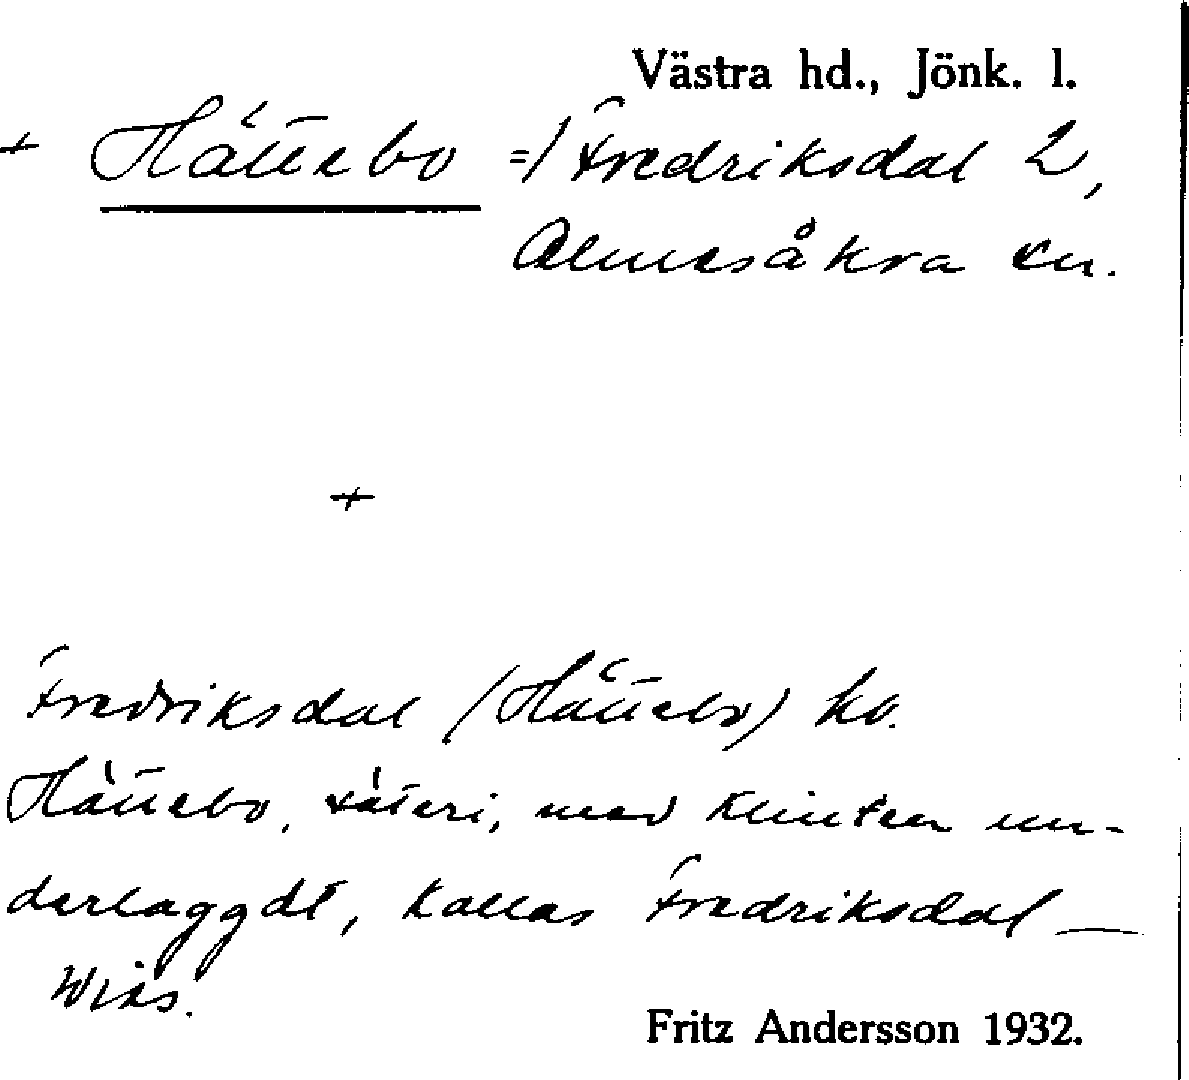 Västra hd., Jönk. l.
+ Hättebo =/ Fredriksdal 2,
Almesåkra sn.
+
Fredriksdal (Hättebo) hg.
Hättebo, säteri, med Klinten un-
derlaggdt, kallas Fredriksdal —
Wies.
Fritz Andersson 1932.